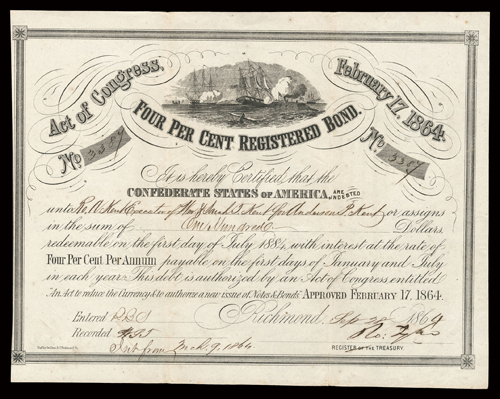 Act of Congress,
February 17, 1864.
FOUR PER CENT REGISTERED BOND.
No 3357
No 3357
It is hereby Certified that the
CONFEDERATE STATES OF AMERICA, ARE INDEBTED
unto or assigns
in the sum of One Hundred Dollars,
redeemable on the first day of July 1884, with interest at the rate of
Four Per Cent. Per Annum payable on the first days of January and July
in each year. This debt is authorized by an Act of Congress entitled
"An Act to reduce the Currency & to authorize a new issue of Notes & Bonds" APPROVED FEBRUARY 17, 1864.
Richmond, 1864
Entered
Recorded
Int from 1864
Ro: Tyler
REGISTER OF THE TREASURY.